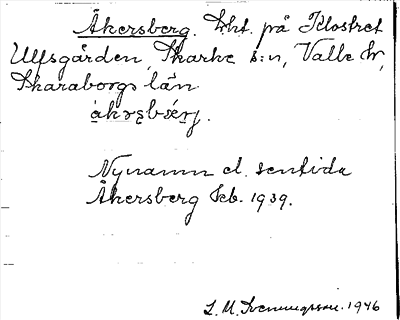 Åkersberg. Lht. på Klostret
Ulfsgården, Skarke s:n, Valle hd,
Skaraborgs län
åkrsbærj.
Nynamn el. sentida
Åkersberg Jcb. 1939.
L. M. Svenungsson. 1946